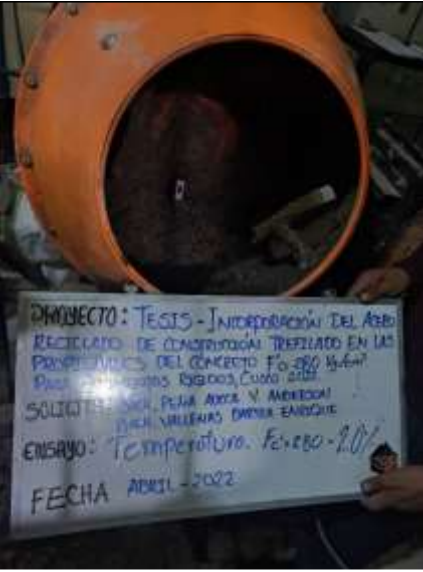 PROYECTO: TESIS - INCORPORACIÓN DEL ACERO
RECICLADO DE CONSTRUCCIÓN TREFILADO EN LAS
PROPIEDADES DEL CONCRETO F'c=280 Kg/cm²
PARA RIGIDOS, CUSCO 2022
SOLICITA: BACH. PEÑA Y ANDERSON
BACH. VALLENAS ENRIQUE
ENSAYO: Temperatura. Fc=280 - 2.0%
FECHA ABRIL - 2022